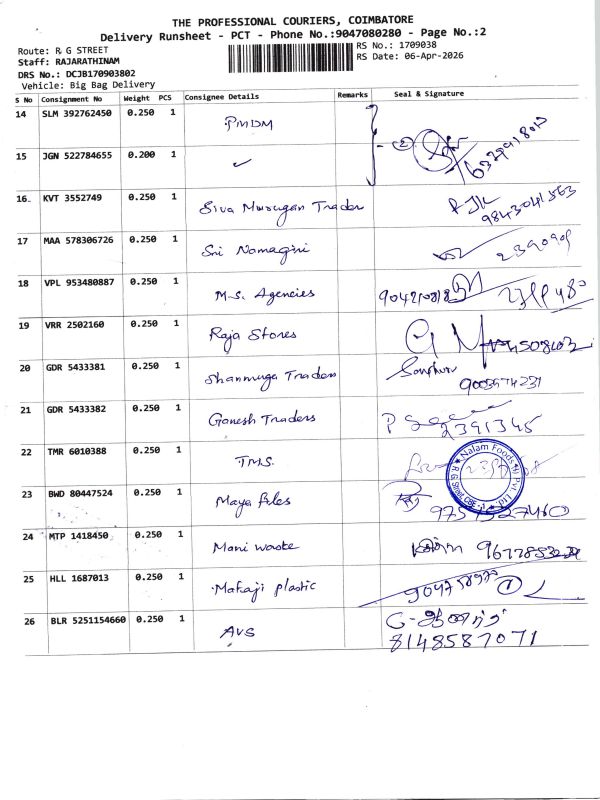 THE PROFESSIONAL COURIERS, COIMBATORE
Delivery Runsheet - PCT - Phone No.:9047080280 - Page No.:2
Route: R G STREET
RS No.: 1709038
Staff: RAJARATHINAM
RS Date: 06-Apr-2026
DRS No.: DCJB170903802
Vehicle: Big Bag Delivery
S No Consignment No Weight PCS Consignee Details Remarks Seal & Signature
14 SLM 392762450 0.250 1 PMDM
15 JGN 522784655 0.200 1 ✓
16. KVT 3552749 0.250 1 Siva Murugan Trader 9843041563
17 MAA 578306726 0.250 1 Sri Namagiri 2390909
18 VPL 953480887 0.250 1 M.S. Agencies
19 VRR 2502160 0.250 1 Raja Stores
20 GDR 5433381 0.250 1 Shanmuga Traders
21 GDR 5433382 0.250 1 Ganesh Traders 2391345
22 TMR 6010388 0.250 1 TMS. Nalam Foods (I) Pvt. Ltd
23 BWD 80447524 0.250 1 Maya files
24 MTP 1418450 0.250 1 Mani waste
25 HLL 1687013 0.250 1 Mataji plastic
26 BLR 5251154660 0.250 1 AVS 8148587071